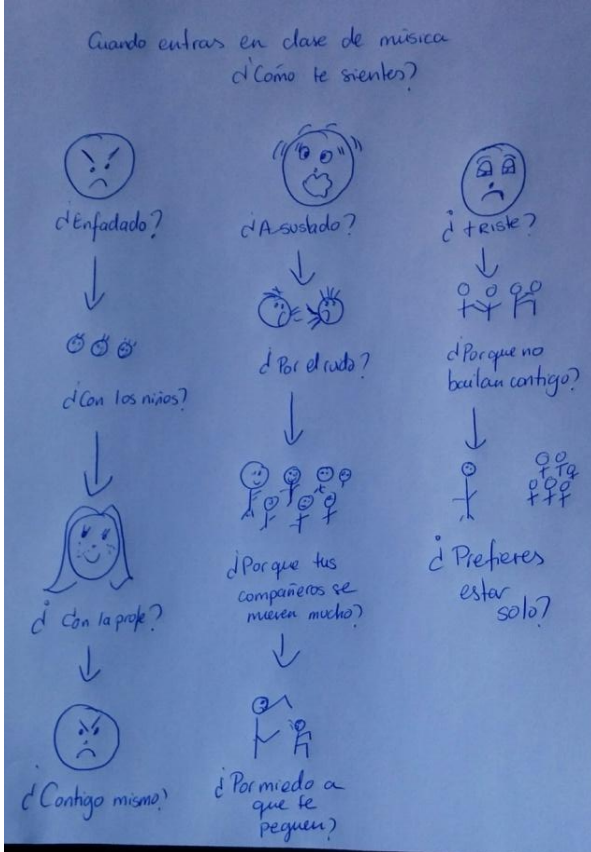 Cuando entras en clase de música
¿Cómo te sientes?
¿Enfadado?
¿Con los niños?
¿Con la profe?
¿Contigo mismo?
¿Asustado?
¿Por el ruido?
¿Porque tus
compañeros se
mueven mucho?
¿Por miedo a
que te
peguen?
¿tRiste?
¿Porque no
bailan contigo?
¿Prefieres
estar
solo?